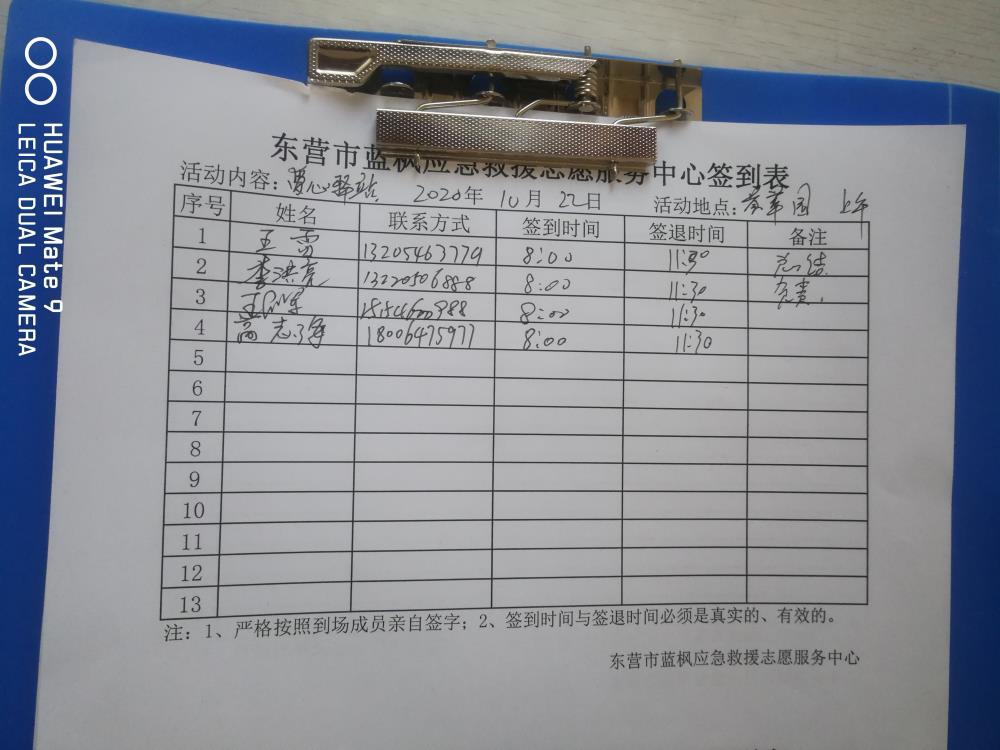 HUAWEI Mate 9
LEICA DUAL CAMERA
东营市蓝枫应急救援志愿服务中心签到表
活动内容：爱心驿站 2020年 10月 22日 活动地点： 园 上午
序号 姓名 联系方式 签到时间 签退时间 备注
1 王雷 13205463779 8:00 11:30 总结
2 李洪亮 13220506888 8:00 11:30 负责
3 8:00 11:30
4 高志海 18006475977 8:00 11:30
5
6
7
8
9
10
11
12
13
注：1、严格按照到场成员亲自签字；2、签到时间与签退时间必须是真实的、有效的。
东营市蓝枫应急救援志愿服务中心